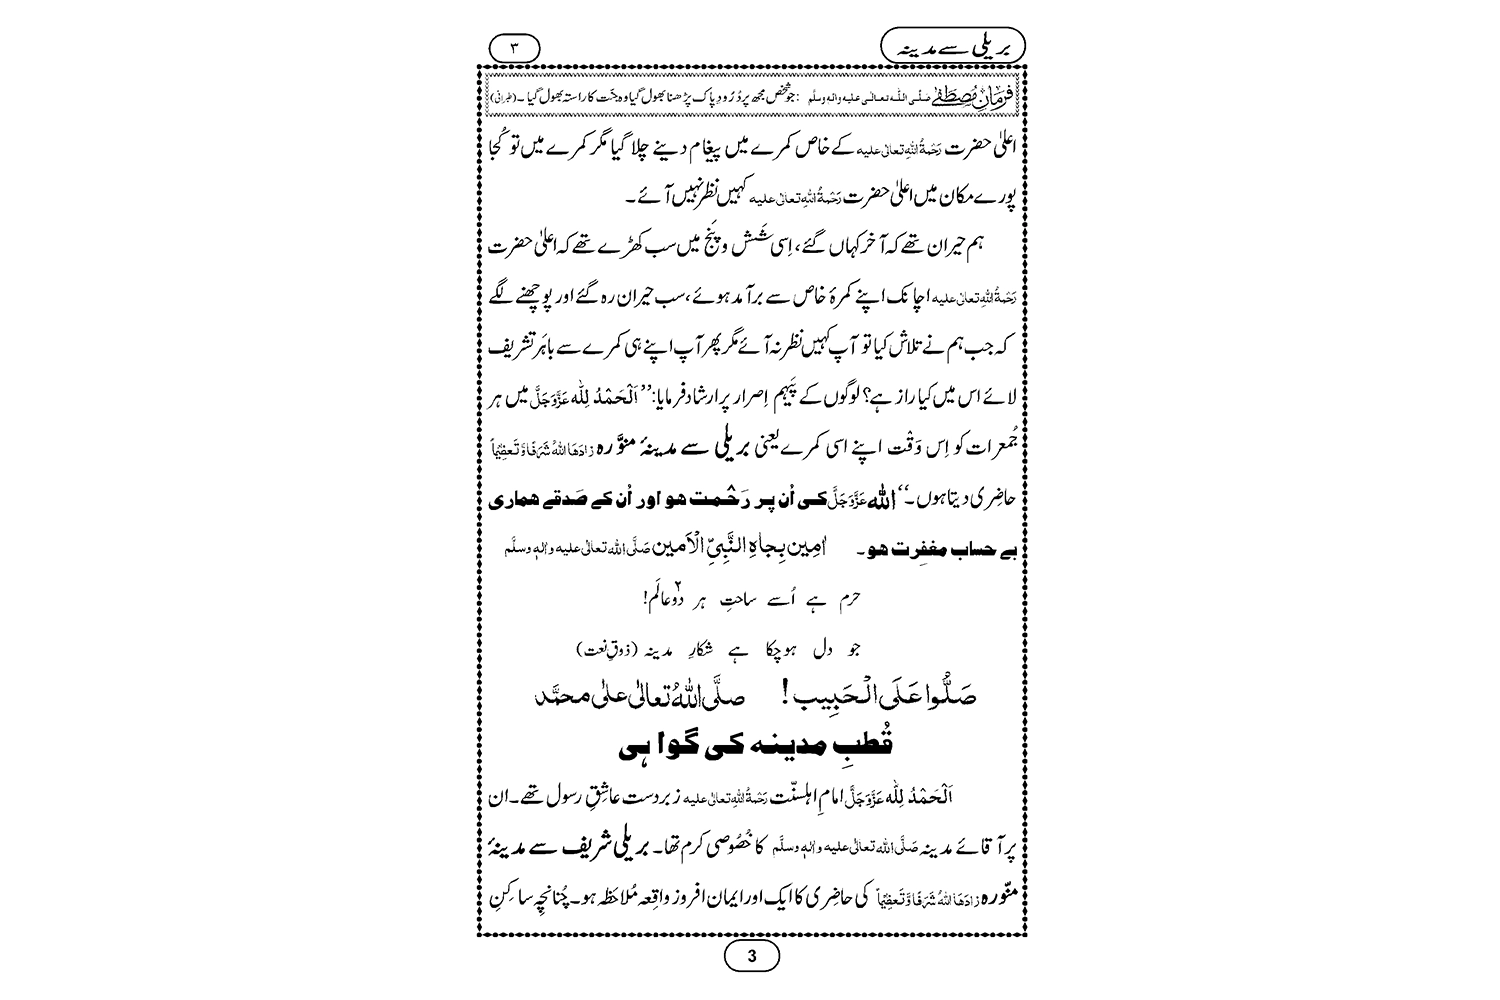 بریلی سے مدینہ
۳
فرمانِ مُصطَفٰے صلَّی اللہ تعالٰی علیہ والہٖ وسلَّم : جو شخص مجھ پر دُرُودِ پاک پڑھنا بھول گیا وہ جنّت کا راستہ بھول گیا ۔ (طبرانی)
اعلٰی حضرت رَحْمَۃُ اللہِ تعالٰی علیہ کے خاص کمرے میں پیغام دینے چلا گیا مگر کمرے میں تو کُجا
پورے مکان میں اعلٰی حضرت رَحْمَۃُ اللہِ تعالٰی علیہ کہیں نظر نہیں آئے ۔
ہم حیران تھے کہ آخر کہاں گئے ، اِسی شَش و پَنج میں سب کھڑے تھے کہ اعلٰی حضرت
رَحْمَۃُ اللہِ تعالٰی علیہ اچانک اپنے کمرۂ خاص سے برآمد ہوئے ، سب حیران رہ گئے اور پوچھنے لگے
کہ جب ہم نے تلاش کیا تو آپ کہیں نظر نہ آئے مگر پھر آپ اپنے ہی کمرے سے باہَر تشریف
لائے اس میں کیا راز ہے؟ لوگوں کے پَیہم اِصرار پر ارشاد فرمایا: ’’اَلْحَمْدُ لِلّٰہ عَزَّوَجَلَّ میں ہر
جُمعرات کو اِس وَقْت اپنے اسی کمرے یعنی بریلی سے مدینۂ منوَّرہ زادَھَا اللہُ شَرَفًا وَّتَعظِیْمًا
حاضِری دیتا ہوں ۔‘‘ اللہ عَزَّوَجَلَّ کی اُن پر رَحْمت ہو اور اُن کے صَدقے ہماری
بے حساب مغفِرت ہو ۔ اٰمِین بِجاہِ النَّبِیِّ الْاَمین صَلَّی اللہ تعالٰی علیہ واٰلہٖ وسلَّم
حرم ہے اُسے ساحتِ ہر دوعالَم!
جو دل ہوچکا ہے شکارِ مدینہ (ذوقِ نعت)
صَلُّوا عَلَی الْحَبِیب ! صلَّی اللہُ تعالٰی علٰی محمَّد
قُطبِ مدینہ کی گواہی
اَلْحَمْدُ لِلّٰہ عَزَّوَجَلَّ امامِ اہلسنّت رَحْمَۃُ اللہِ تعالٰی علیہ زبردست عاشِقِ رسول تھے ۔ ان
پر آقائے مدینہ صَلَّی اللہ تعالٰی علیہ واٰلہٖ وسلَّم کا خُصُوصی کرم تھا ۔ بریلی شریف سے مدینۂ
منوّرہ زادَھَا اللہُ شَرَفًا وَّتَعظِیْمًا کی حاضِری کا ایک اور ایمان افروز واقِعہ مُلاحَظہ ہو ۔ چُنانچِہ ساکِنِ
3